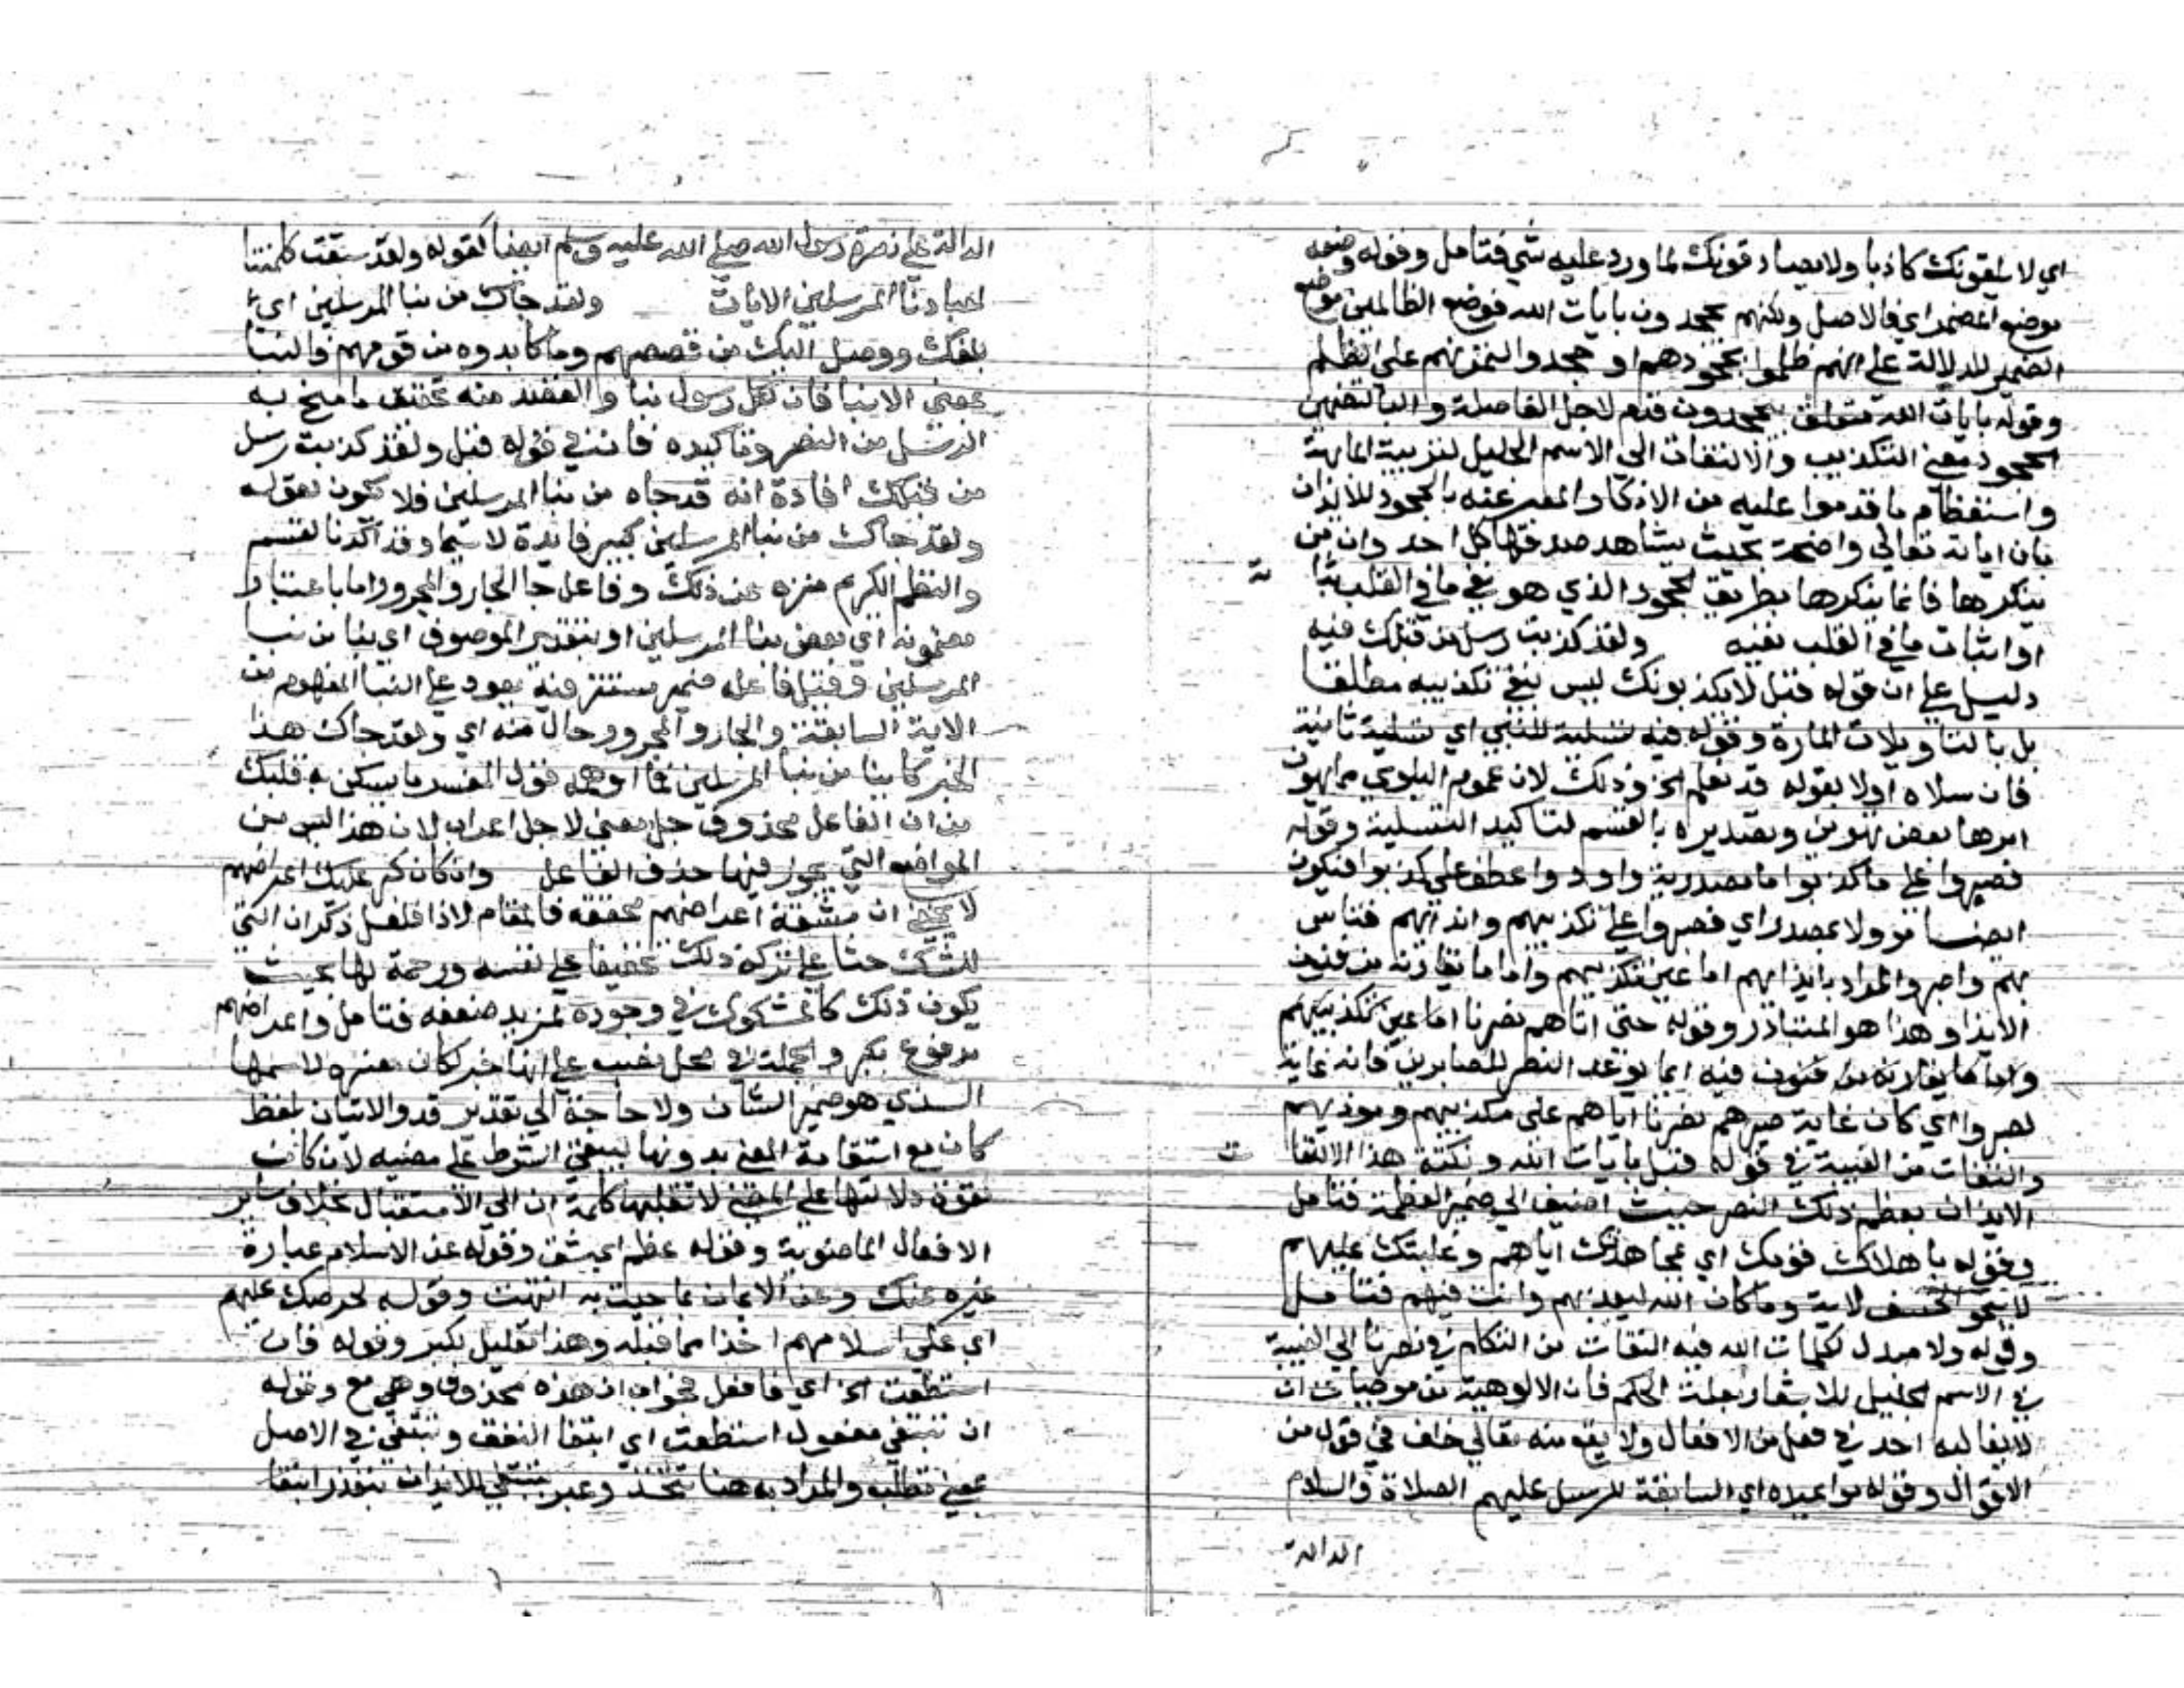 اي لا يلقونك كاذبا ولا يصادقونك لما ورد عليه شي فتامل وقوله وضعه
موضع المضمر اي فالاصل ولكنهم يجحدون بايات الله فوضع الظالمين موضع
الضمير للدلالة على انهم ظلموا بجحودهم او جحدوا لتمرنهم على الظلم
وقوله بايات الله متعلق بيجحدون قدم لاجل الفاصلة والبا لتضمين
الجحود معنى التكذيب والالتفات الى الاسم الجليل لتربية المهابة
واستعظام ما قدموا عليه من الانكار المعبر عنه بالجحود للايذان
بان اياته تعالي واضحة بحيث يشاهد صدقها كل احد وان من
ينكرها فانما ينكرها بطريق الجحود الذي هو نفي ما في القلب ثباته
او اثبات ما في القلب نفيه ولقد كذبت رسل من قبلك فيه
دليل على ان قوله قبل لا يكذبونك ليس نفي تكذيبه مطلقا
بل بالتاويلات المارة وقوله فيه تسلية للنبي اي تسلية ثانية
فان سلاه اولا بقوله قد نعلم الخ وذلك لان عموم البلوي مما يهون
امرها بعض تهوين وتصديره بالقسم لتاكيد التسلية وقوله
فصبروا على ما كذبوا ما مصدرية واوذوا عطف على كذبوا فيكون
ايضا موولا بمصدر اي فصبروا على تكذيبهم وايذائهم فتاس
بهم واصبر والمراد بايذائهم اما عين تكذيبهم واما ما يقارنه من فنون
الايذا وهذا هو المتبادر وقوله حتى اتاهم نصرنا اما عين تكذيبهم
واما ما يقارنه من فنون فيه ايما بوعد النصر للصابرين فانه غاية
لصبروا اي كان غاية صبرهم نصرنا اياهم على مكذبيهم وموذيهم
والتفات من الغيبة في قوله قبل بايات الله ونكتة هذا الالتفات
الايذان بعظم ذلك النصر حيث اضيف الى ضمير العظمة فتامل
وقوله باهلاك قومك اي بمجاهدتك اياهم وغلبتك عليهم
لا بنحو الخسف لاية وما كان الله ليعذبهم وانت فيهم فتامل
وقوله ولا مبدل لكلمات الله فيه التفات من التكلم في نصرنا الي الغيبة
في الاسم الجليل للاشعار بعلة الحكم فان الالوهية من موجبات ان
لا يغالبه احد في فعل من الافعال ولا يقع منه تعالي خلف في قول من
الاقوال وقوله مواعيده اي السابقة للرسل عليهم الصلاة والسلام
الدالة
الدالة على نصرة رسول الله صلى الله عليه وسلم ايضا كقوله ولقد سبقت كلمتنا
لعبادنا المرسلين الايات ولقد جاك من نبا المرسلين اي
بلغك ووصل اليك من قصصهم وما كابدوه من قومهم فالنبا
بمعنى الانبا فان لكل رسول نبا والقصد منه تحقيق ما منح به
الرسل من النصر وتاكيده فان في قوله قبل ولقد كذبت رسل
من قبلك افادة انه قد جاه من نبا المرسلين فلا تكون لقوله
ولقد جاك من نبا المرسلين كبير فايدة لا سيما وقد اكدنا لقسم
والنظم الكريم منزه عن ذلك وفاعل جا الجار والمجرور اما باعتبار
مضمونه اي بعض نبا المرسلين او بتقدير الموصوف اي نبا من نبا
المرسلين وقيل فاعله ضمير مستتر فيه يعود على النبا المفهوم من
الاية السابقة والجار والمجرور حال منه اي ولقد جاك هذا
الخبر كائنا من نبا المرسلين فما اوهمه قول المفسر ما يسكن به قلبك
من ان الفاعل محذوف حل معنى لا حل اعراب لان هذا ليس من
المواضع التي يجوز فيها حذف الفاعل وان كان كبر عليك اعراضهم
لا يخفى ان مشقة اعراضهم محققه فالمقام لاذا فلعل ذكر ان التي
للشك حثا على تركه ذلك تخفيفا على نفسه ورحمة لها بحيث
يكون ذلك كالمشكوك في وجوده لمزيد ضعفه فتامل واعراضهم
مرفوع بكبر والجملة في محل نصب على انها خبر لكان مفسره لاسمها
الذي هو ضمير الشان ولا حاجة الي تقدير قد والاتيان بلفظ
كان مع استقامة المعنى بدونها ليبقى الشرط على مضيه لان كان
لقوة دلالتها على المضي لا تقلبها كلمة ان الي الاستقبال بخلاف ساير
الافعال الماضوية وقوله عظم اي شق وقوله عن الاسلام عبارة
غيره عنك وعن الايمان بما جيت به انتهت وقوله لحرصك عليهم
اي على اسلامهم اخذا مما قبله وهذا تعليل لكبر وقوله فان
استطعت الخ اي فافعل فجواب ان هذه محذوف وهي مع وقوله
ان تبتغي مفعول استطعت اي ابتغا النفق وتبتغي في الاصل
بمعنى تطلب والمراد به هنا تتخذ وعبر بتبتغي للايذان بتعذر ابتغا